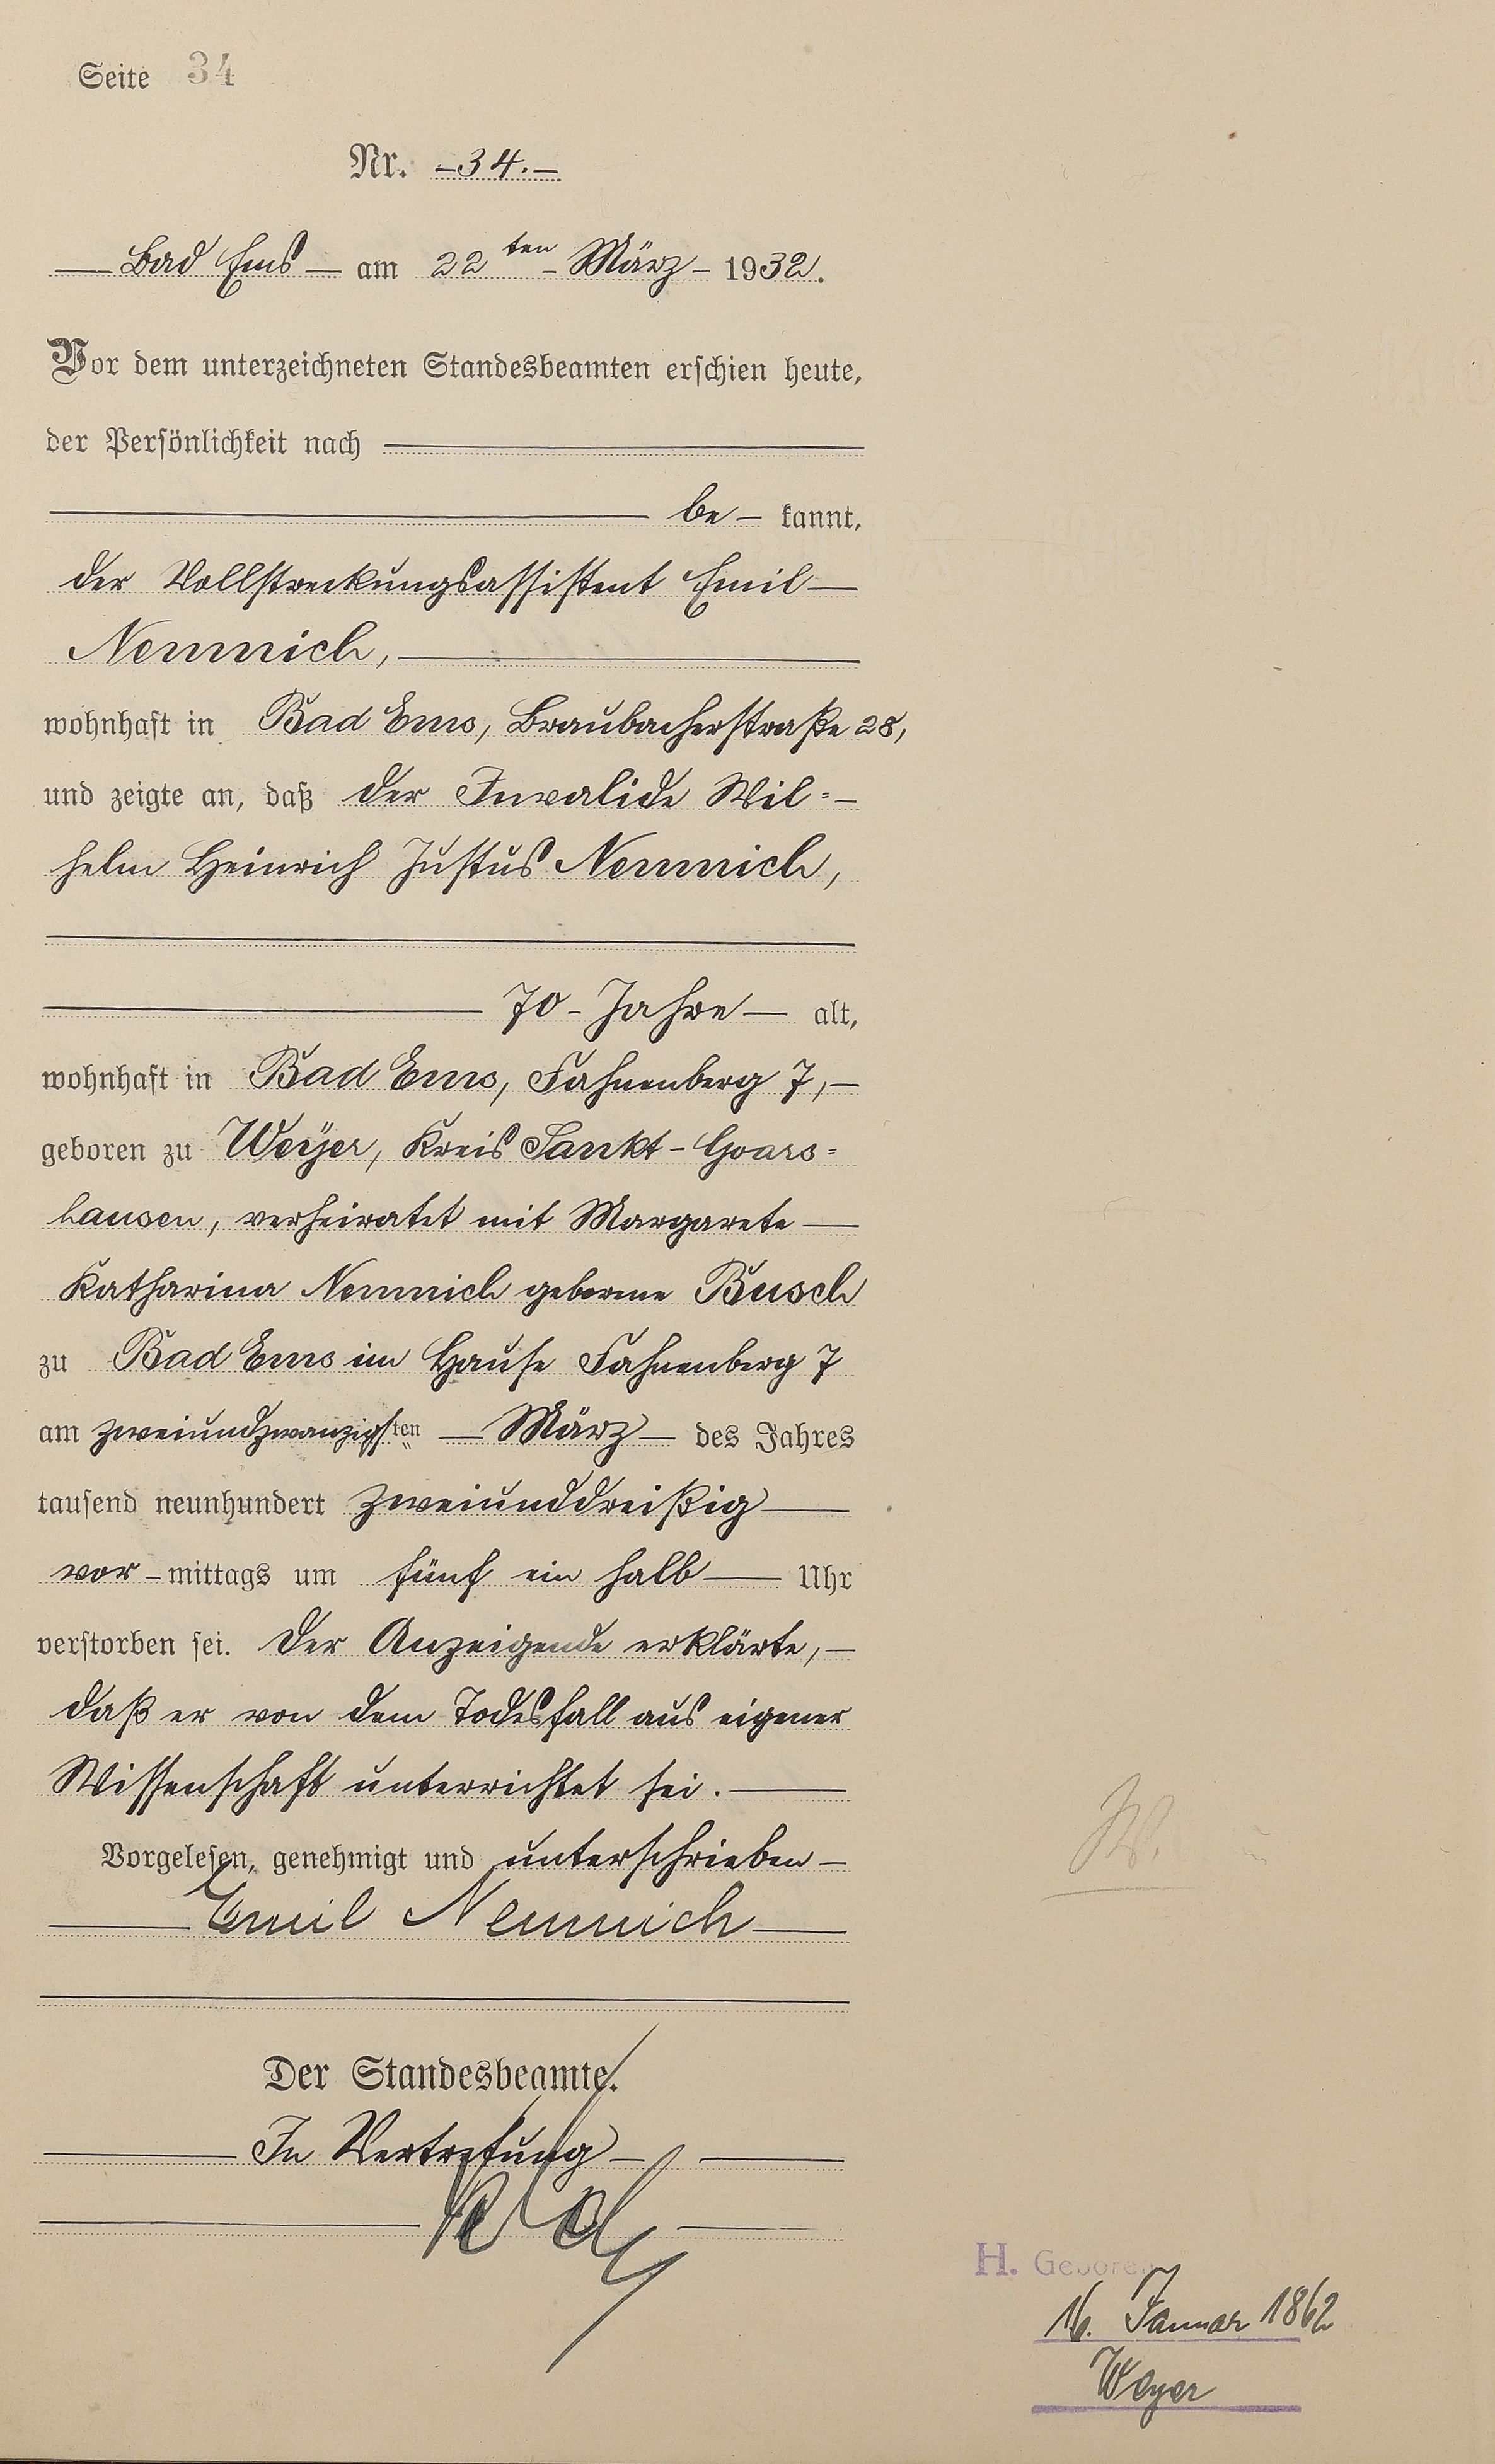 Seite 34
Nr. –34.–
Bad Ems – am 22ten – März – 1932.
Vor dem unterzeichneten Standesbeamten erschien heute,
der Persönlichkeit nach
be – kannt,
der Vollstreckungsassistent Emil
Nemnich,
wohnhaft in Bad Ems, Braubacherstraße 28,
und zeigte an, daß der Invalide Wil=
helm Heinrich Justus Nemnich,
70 – Jahre – alt,
wohnhaft in Bad Ems, Fahnenberg 7,
geboren zu Weyer, Kreis Sankt-Goars=
hausen, verheiratet mit Margarete
Katharina Nemnich geborene Busch
zu Bad Ems im Hause Fahnenberg 7
am zweiundzwanzigsten – März – des Jahres
tausend neunhundert zweiunddreißig
vor – mittags um fünf ein halb Uhr
verstorben sei. Der Anzeigende erklärte,
daß er von dem Todesfall aus eigener
Wissenschaft unterrichtet sei.
Vorgelesen, genehmigt und unterschrieben
Emil Nemnich
Der Standesbeamte.
In Vertretung
W.
H. Geboren
16. Januar 1862
Weyer